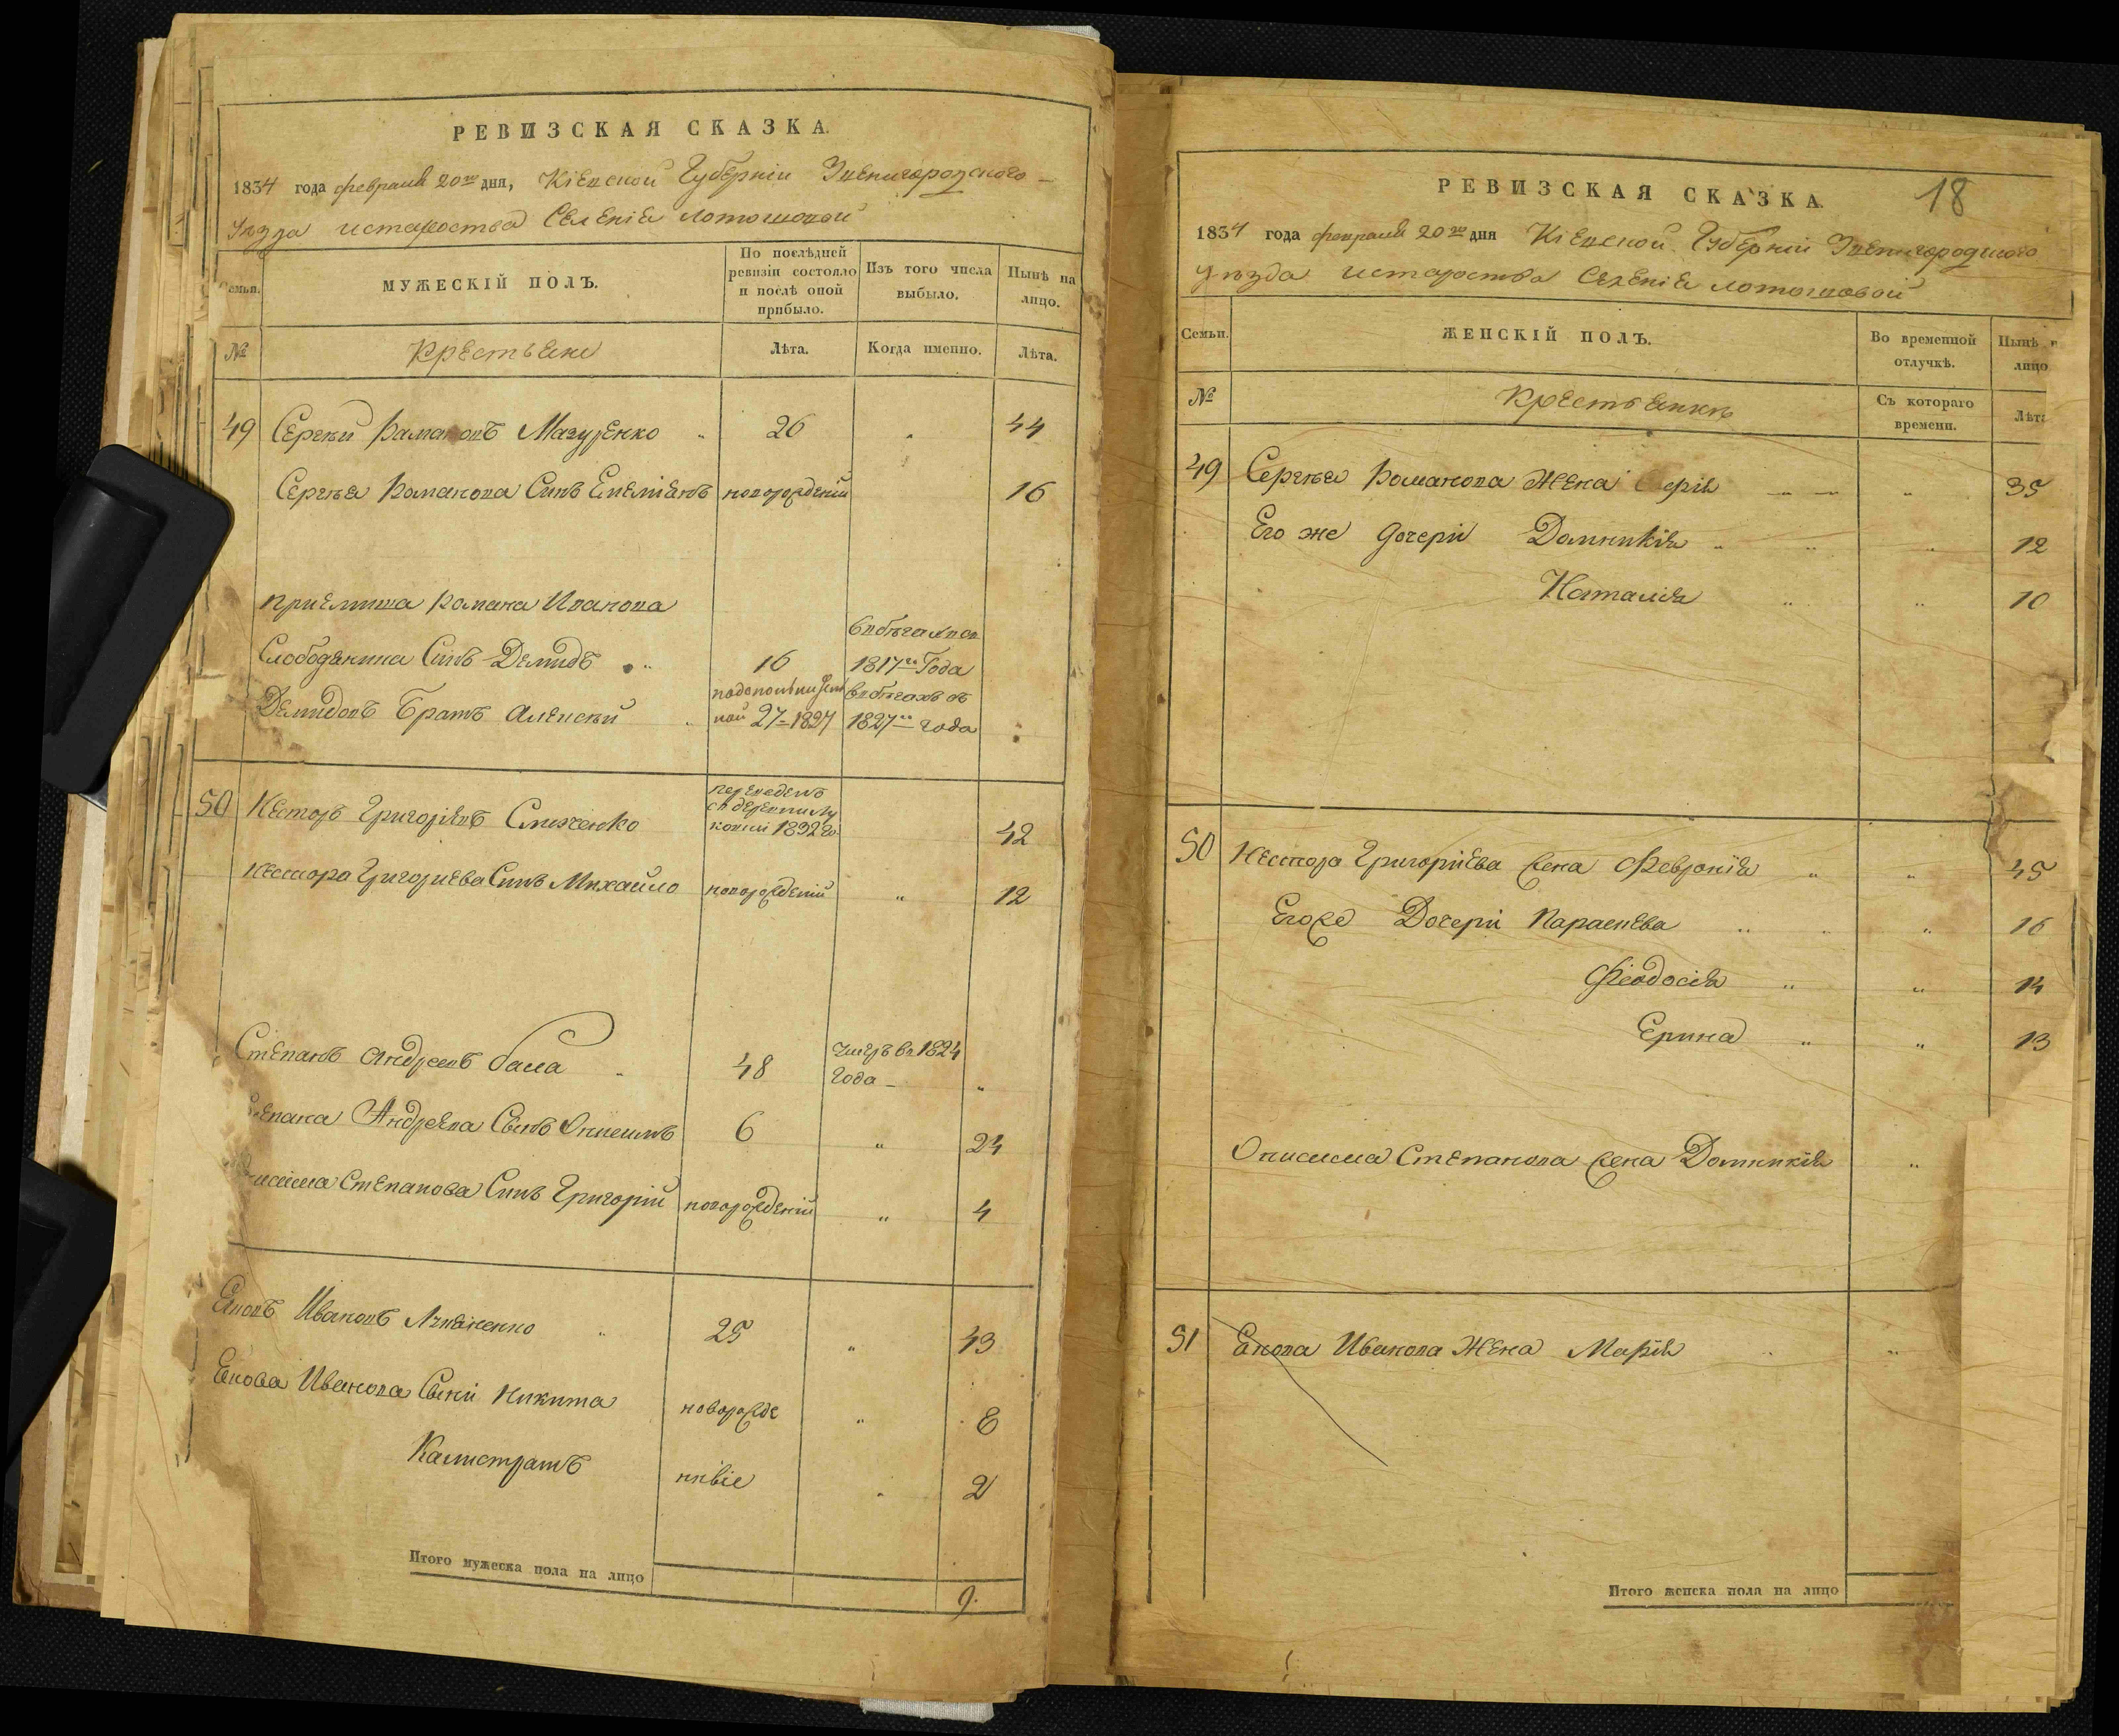 РЕВИЗСКАЯ СКАЗКА.
1834 года февраля 20го дня, Кіевской Губерніи Звенигородского
Уезда истароства Селенія Лотошовой
Семьи.
МУЖЕСКІЙ ПОЛЪ.
По послѣдней ревизіи состояло и послѣ оной прибыло.
Изъ того числа выбыло.
Нынѣ на лицо.
№
Крестьяне
Лѣта.
Когда именно.
Лѣта.
49 Сергѣй Романовъ Мазуренко " 26 " 44
Сергѣя Романова Синъ Емеліянъ новорожденій 16
Приемиша Романа Иванова
Слободянина Синъ Демидъ " 16 в бѣгах са 1817го Года
Демидовъ Братъ Алексѣй " 27 - 1827 в бѣгахъ съ 1827го года "
50 Несторъ Григоріевъ Слюсченко переведенъ 1832 42
Нестора Григориева Синъ Михайло новорожденій " 12
Степанъ Андреевъ баса " 48 умеръ въ 1824 Года "
Степана Андреева Сынъ Онисимъ 6 " 24
Онисима Степанова Синъ Григорій новорожденій " 4
Яковъ Ивановъ " 25 " 43
Якова Иванова Сыни Никита новорожде " 8
Калистратъ ннѣіе " 2
Итого мужеска пола на лицо 9.
18
РЕВИЗСКАЯ СКАЗКА.
1834 года февраля 20го дня Кіевской Губерніи Звенигородского
уезда истароства Селенія Лотошовой
Семьи.
ЖЕНСКІЙ ПОЛЪ.
Во временной отлучкѣ.
Нынѣ лицо
№
Крестьянки
Съ котораго времени.
Лѣта
49 Сергѣя Романова Жена " 35
Его же дочери Домникія " " " 12
Наталія " " 10
50 Нестора Григоріева жена Февронія " " 45
Егоже Дочери Параскева " " " 16
Феодосія " " 14
Ерина " " 13
Онисима Степанова жена Домникія "
51 Якова Иванова Жена Марія " "
Итого женска пола на лицо